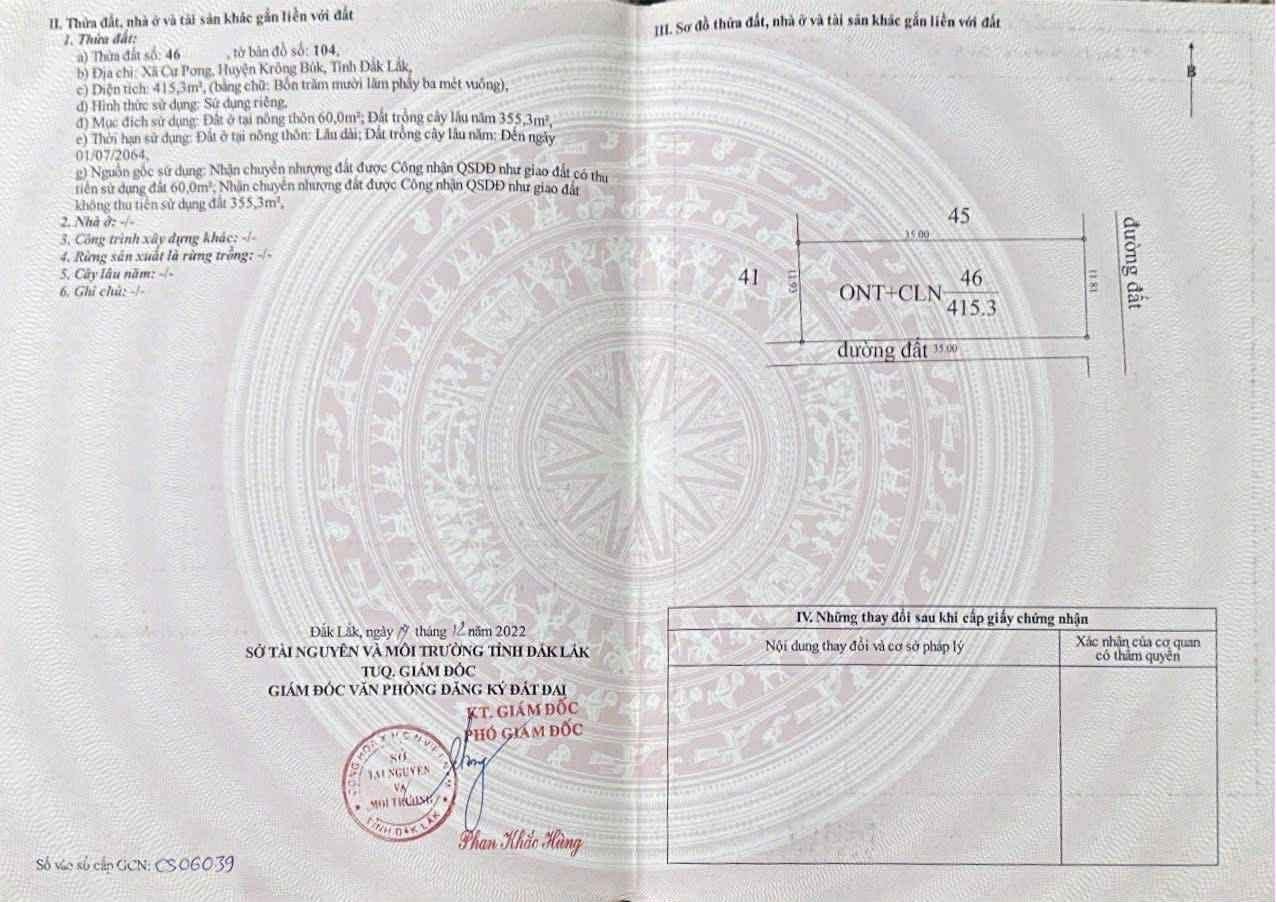 II. Thửa đất, nhà ở và tài sản khác gắn liền với đất
1. Thửa đất:
a) Thửa đất số: 46 , tờ bản đồ số: 104,
b) Địa chỉ: Xã Cư Pơng, Huyện Krông Búk, Tỉnh Đắk Lắk,
c) Diện tích: 415,3m², (bằng chữ: Bốn trăm mười lăm phẩy ba mét vuông),
d) Hình thức sử dụng: Sử dụng riêng,
đ) Mục đích sử dụng: Đất ở tại nông thôn 60,0m²; Đất trồng cây lâu năm 355,3m²,
e) Thời hạn sử dụng: Đất ở tại nông thôn: Lâu dài; Đất trồng cây lâu năm: Đến ngày
01/07/2064,
g) Nguồn gốc sử dụng: Nhận chuyển nhượng đất được Công nhận QSDĐ như giao đất có thu
tiền sử dụng đất 60,0m²; Nhận chuyển nhượng đất được Công nhận QSDĐ như giao đất
không thu tiền sử dụng đất 355,3m²,
2. Nhà ở: -/-
3. Công trình xây dựng khác: -/-
4. Rừng sản xuất là rừng trồng: -/-
5. Cây lâu năm: -/-
6. Ghi chú: -/-
Đắk Lắk, ngày 19 tháng 12 năm 2022
SỞ TÀI NGUYÊN VÀ MÔI TRƯỜNG TỈNH ĐẮK LẮK
TUQ. GIÁM ĐỐC
GIÁM ĐỐC VĂN PHÒNG ĐĂNG KÝ ĐẤT ĐAI
KT. GIÁM ĐỐC
PHÓ GIÁM ĐỐC
SỞ
TÀI NGUYÊN
VÀ
MÔI TRƯỜNG
TỈNH ĐẮK LẮK
Phan Khắc Hùng
Số vào sổ cấp GCN: CS06039
III. Sơ đồ thửa đất, nhà ở và tài sản khác gắn liền với đất
B
45
35.00
41
11.93
ONT+CLN
46
415.3
11.81
đường đất
đường đất 35.00
IV. Những thay đổi sau khi cấp giấy chứng nhận
Nội dung thay đổi và cơ sở pháp lý
Xác nhận của cơ quan
có thẩm quyền